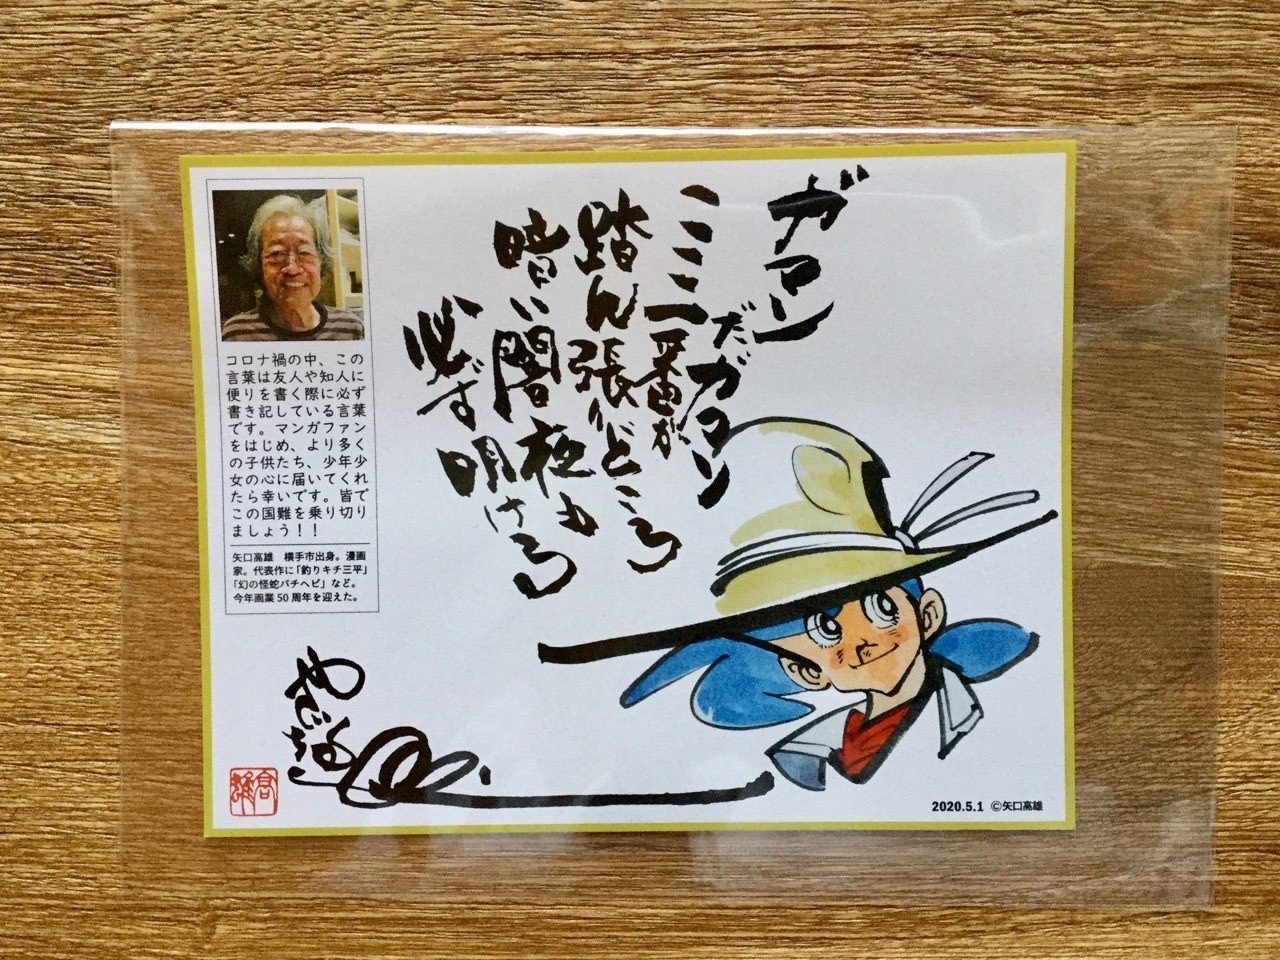 ガマン
だガマン
ミミ一番が
踏ん張りどころ
暗い闇夜も
必ず明ける
コロナ禍の中、この
言葉は友人や知人に
便りを書く際に必ず
書き記している言葉
です。マンガファン
をはじめ、より多く
の子供たち、少年少
女の心に届いてくれ
たら幸いです。皆で
この国難を乗り切り
ましょう！！
矢口高雄　横手市出身。漫画
家。代表作に「釣りキチ三平」
「幻の怪蛇バチヘビ」など。
今年画業50周年を迎えた。
高雄
2020.5.1 ©矢口高雄